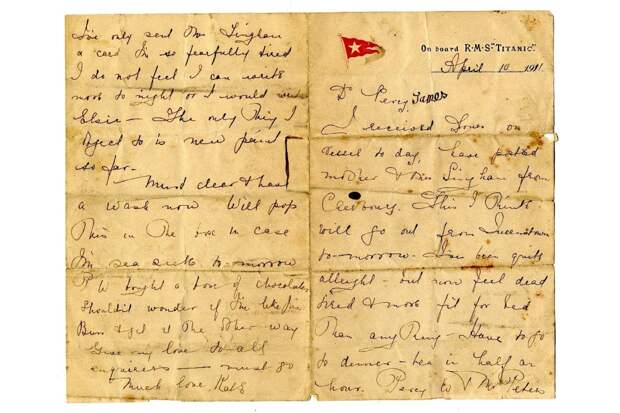 On board R.M.S. "TITANIC".
April 10 1911
Dr Percy James
I received yours on
vessel to day, have posted
mother & Miss Lingham from
Cherbourg. This I think
will go out from Queenstown
to-morrow. I've been quite
allright - but now feel dead
tired & more fit for bed
than anything. Have to go
to dinner - tea in half an
hour. Percy W & Mr Peters
I've only sent Miss Lingham
a card I'm so fearfully tired
I do not feel I can write
more to night or I would
Elsie - The only thing I
object to is new paint
so far.
Must clear & have
a wash now Will pop
This in the box in case
I'm sea sick to-morrow
P W bought a box of chocolate,
Shouldn't wonder if I'm like Jim
Buss & get it the other way
Give my love to all
enquirers - must go
Much love Kate